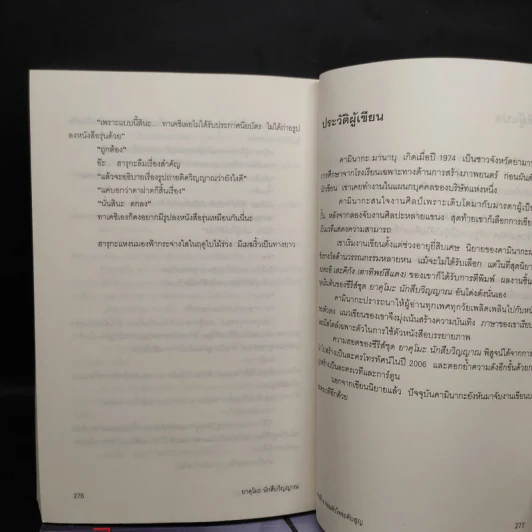 "เพราะแบบนี้สินะ... ทาเคชิเลยไม่ได้รับประกาศนียบัตร ไม่ได้ถ่ายรูป
ลงหนังสือรุ่นด้วย"
"ถูกต้อง"
อ๊ะ... ฮารุกะลืมเรื่องสำคัญ
"แล้วจะอธิบายเรื่องรูปถ่ายติดวิญญาณว่ายังไงดี"
"แค่บอกว่าตาฝาดก็สิ้นเรื่อง"
"นั่นสินะ ตกลง"
ทาเคชิเองก็คงอยากมีรูปลงหนังสือรุ่นเหมือนกันนี่นะ
ฮารุกะแหงนมองฟ้ากระจ่างใสในฤดูใบไม้ร่วง มีเมฆริ้วเป็นทางยาว
276
ยาคุโมะ นักสืบวิญญาณ
ประวัติผู้เขียน
คามินากะ มานาบุ เกิดเมื่อปี 1974 เป็นชาวจังหวัดยามานา
การศึกษาจากโรงเรียนเฉพาะทางด้านการสร้างภาพยนตร์ ก่อนผันตั
นักเขียน เขาเคยทำงานในแผนกบุคคลของบริษัทแห่งหนึ่ง
คามินากะสนใจงานศิลป์เพราะเติบโตมากับมารดาผู้เป็น
หลังจากลองจับงานศิลปะหลายแขนง สุดท้ายเขาก็เลือกการเขีย
เป็นเวทีแสดงความสามารถ
เขาเริ่มงานเขียนตั้งแต่ช่วงอายุยี่สิบเศษ นิยายของคามินากะผ่า
รางวัลด้านวรรณกรรมหลายหน แม้จะไม่ได้รับเลือก แต่ในที่สุดนิยาย
(ตาทิพย์สีแดง) ของเขาก็ได้รับการตีพิมพ์ ผลงานชิ้นนี้
ต้นของซีรีส์ชุด ยาคุโมะ นักสืบวิญญาณ อันโด่งดังนั่นเอง
คามินากะปรารถนาให้ผู้อ่านทุกเพศทุกวัยเพลิดเพลินไปกับหนัง
แนวเขียนของเขาจึงมุ่งเน้นสร้างความบันเทิง ภาษาของเขาเรียบ
สไตล์เฉพาะตัวในการใช้ตัวหนังสือบรรยายภาพ
ความฮอตของซีรีส์ชุด ยาคุโมะ นักสืบวิญญาณ พิสูจน์ได้จากการ
สร้างเป็นละครโทรทัศน์ในปี 2006 และตอกย้ำความดังอีกชั้นด้วยก
สร้างเป็นละครเวทีและการ์ตูน
นอกจากเขียนนิยายแล้ว ปัจจุบันคามินากะยังหันมาจับงานเขียนบ
ละครเวทีอีกด้วย
277